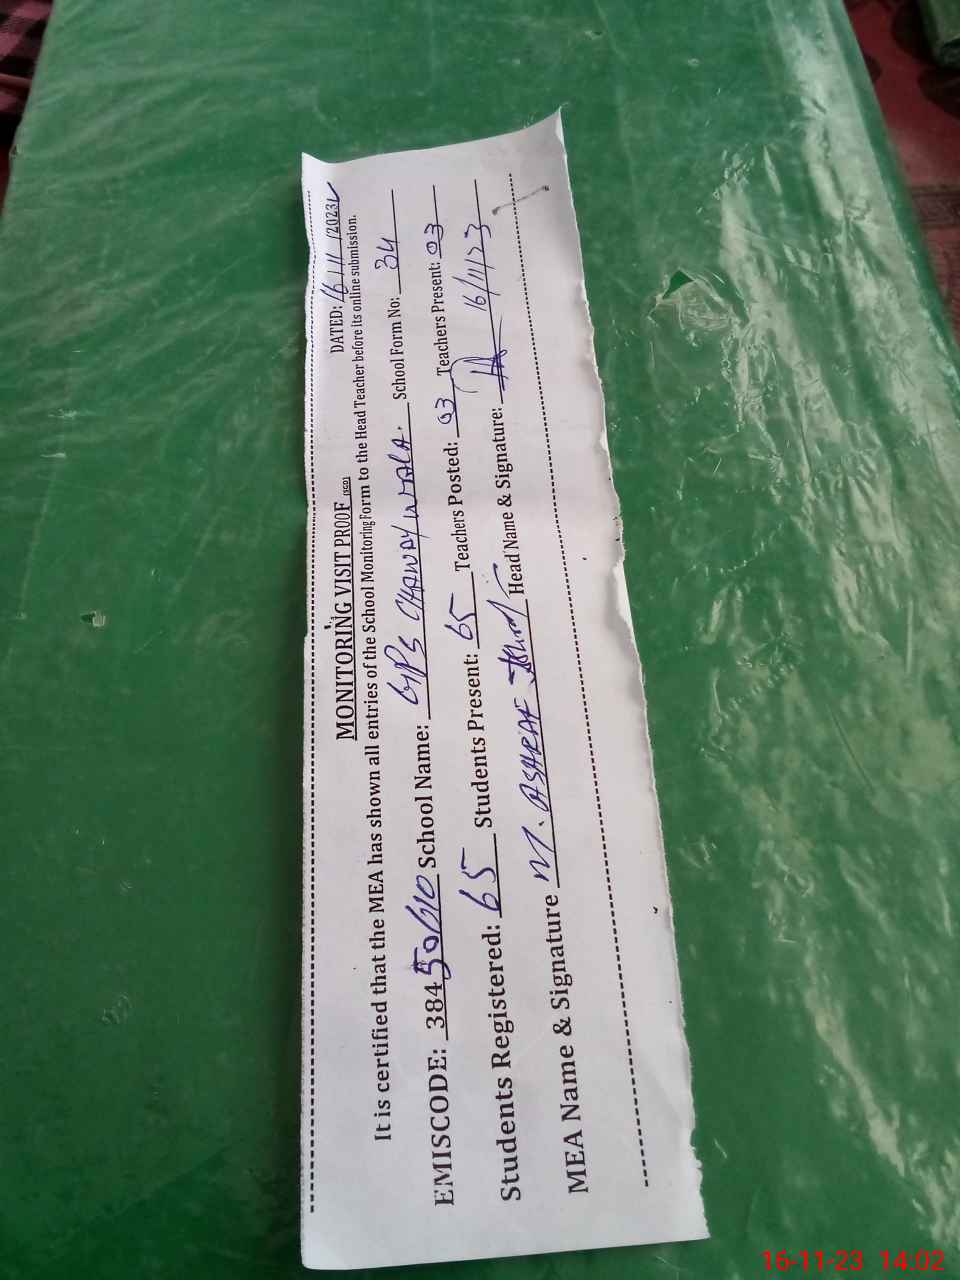 MONITORING VISIT PROOF (SED) DATED: 16/11/2023
It is certified that the MEA has shown all entries of the School Monitoring Form to the Head Teacher before its online submission.
EMISCODE: 38450610 School Name: GPS CHAWAY WALA. School Form No: 34
Students Registered: 65 Students Present: 65 Teachers Posted: 03 Teachers Present: 03
MEA Name & Signature M. ASHRAF Head Name & Signature: 16/11/23
16-11-23 14:02